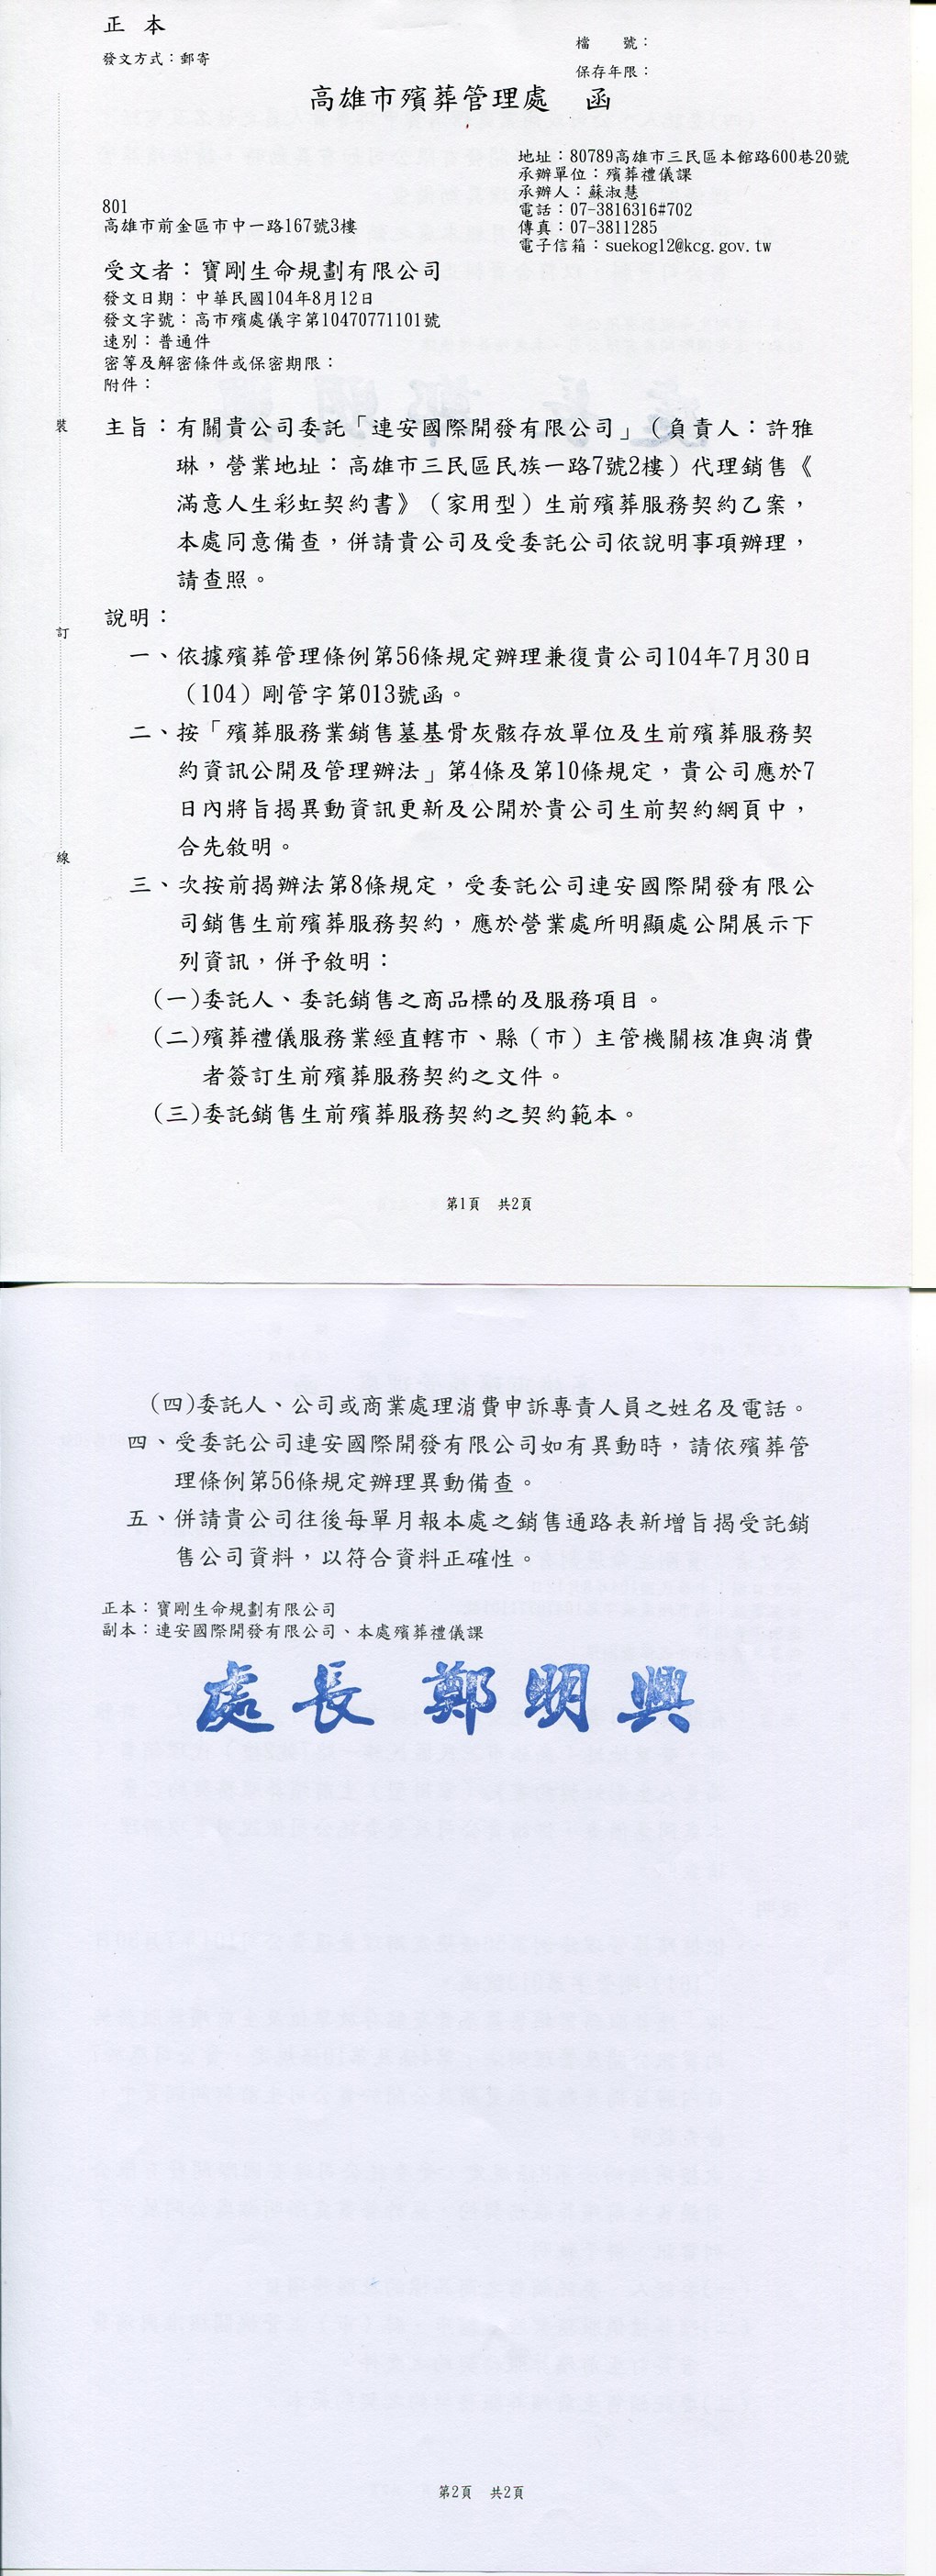 正本
發文方式：郵寄
檔　　號：
保存年限：
高雄市殯葬管理處　函
地址：80789高雄市三民區本館路600巷20號
承辦單位：殯葬禮儀課
承辦人：蘇淑慧
電話：07-3816316#702
傳真：07-3811285
電子信箱：suekog12@kcg.gov.tw
801
高雄市前金區市中一路167號3樓
受文者：寶剛生命規劃有限公司
發文日期：中華民國104年8月12日
發文字號：高市殯處儀字第10470771101號
速別：普通件
密等及解密條件或保密期限：
附件：
主旨：有關貴公司委託「連安國際開發有限公司」（負責人：許雅
琳，營業地址：高雄市三民區民族一路7號2樓）代理銷售《
滿意人生彩虹契約書》（家用型）生前殯葬服務契約乙案，
本處同意備查，併請貴公司及受委託公司依說明事項辦理，
請查照。
說明：
一、依據殯葬管理條例第56條規定辦理兼復貴公司104年7月30日
（104）剛管字第013號函。
二、按「殯葬服務業銷售墓基骨灰骸存放單位及生前殯葬服務契
約資訊公開及管理辦法」第4條及第10條規定，貴公司應於7
日內將旨揭異動資訊更新及公開於貴公司生前契約網頁中，
合先敘明。
三、次按前揭辦法第8條規定，受委託公司連安國際開發有限公
司銷售生前殯葬服務契約，應於營業處所明顯處公開展示下
列資訊，併予敘明：
(一)委託人、委託銷售之商品標的及服務項目。
(二)殯葬禮儀服務業經直轄市、縣（市）主管機關核准與消費
者簽訂生前殯葬服務契約之文件。
(三)委託銷售生前殯葬服務契約之契約範本。
裝
訂
線
第1頁　共2頁
(四)委託人、公司或商業處理消費申訴專責人員之姓名及電話。
四、受委託公司連安國際開發有限公司如有異動時，請依殯葬管
理條例第56條規定辦理異動備查。
五、併請貴公司往後每單月報本處之銷售通路表新增旨揭受託銷
售公司資料，以符合資料正確性。
正本：寶剛生命規劃有限公司
副本：連安國際開發有限公司、本處殯葬禮儀課
處長 鄭明興
第2頁　共2頁